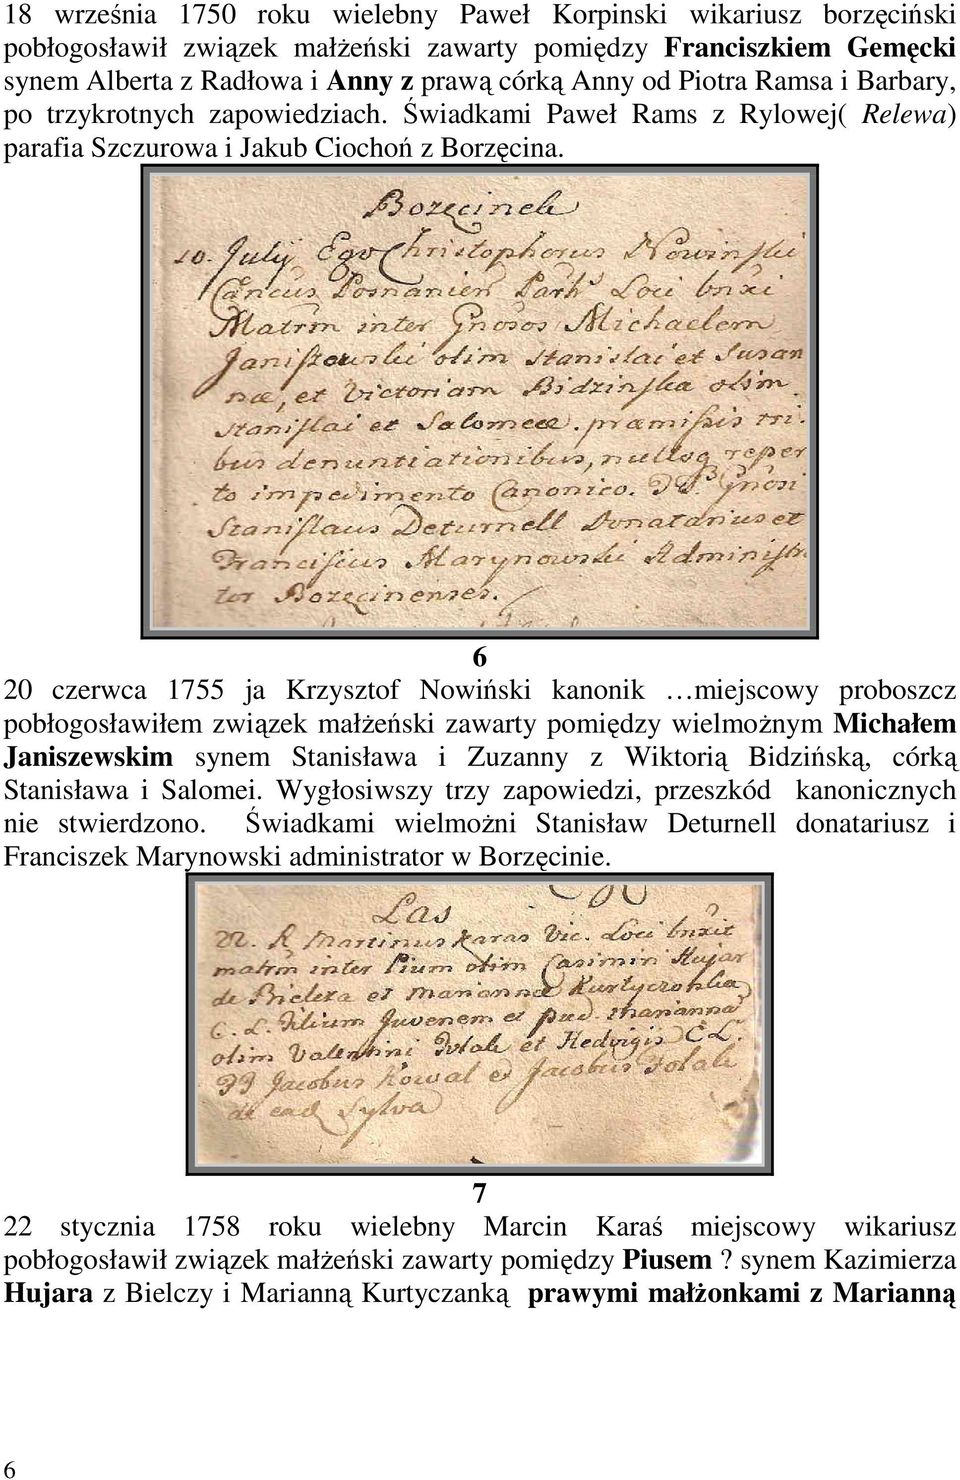 18 września 1750 roku wielebny Paweł Korpinski wikariusz borzęciński
pobłogosławił związek małżeński zawarty pomiędzy Franciszkiem Gemęcki
synem Alberta z Radłowa i Anny z prawą córką Anny od Piotra Ramsa i Barbary,
po trzykrotnych zapowiedziach. Świadkami Paweł Rams z Rylowej( Relewa)
parafia Szczurowa i Jakub Ciochoń z Borzęcina.
Bozęcinek
10. July Ego Christophorus Nowinski
Cancus Posnanien Parh Loci bnxi
Matrm inter Gnosos Michaelem
Janiszowski olim Stanislai et Susan
næ, et Victoriam Bidzinska olim
Stanislai et Salomeæ. præmissis tri-
bus denuntiationibus, nulloq reper
to impedimento Canonico. PP. Gnosi
Stanislaus Deturnell Donatarius et
Franciscus Marynowski Administra
tor Bozęcinenses.
6
20 czerwca 1755 ja Krzysztof Nowiński kanonik …miejscowy proboszcz
pobłogosławiłem związek małżeński zawarty pomiędzy wielmożnym Michałem
Janiszewskim synem Stanisława i Zuzanny z Wiktorią Bidzińską, córką
Stanisława i Salomei. Wygłosiwszy trzy zapowiedzi, przeszkód kanonicznych
nie stwierdzono. Świadkami wielmożni Stanisław Deturnell donatariusz i
Franciszek Marynowski administrator w Borzęcinie.
Las
22. R Martinus Karas Vic. Loci bnxit
matrm inter Pium olim Casimiri Hujar
de Bielcza et Mariannæ Kurtyczonka
C. L. Filium Juvenem et pud. Mariannā
olim Valentini et Hedvigis C L.
PP Jacobus Kowal et Jacobus
de ead Sylva
7
22 stycznia 1758 roku wielebny Marcin Karaś miejscowy wikariusz
pobłogosławił związek małżeński zawarty pomiędzy Piusem ? synem Kazimierza
Hujara z Bielczy i Marianną Kurtyczanką prawymi małżonkami z Marianną
6